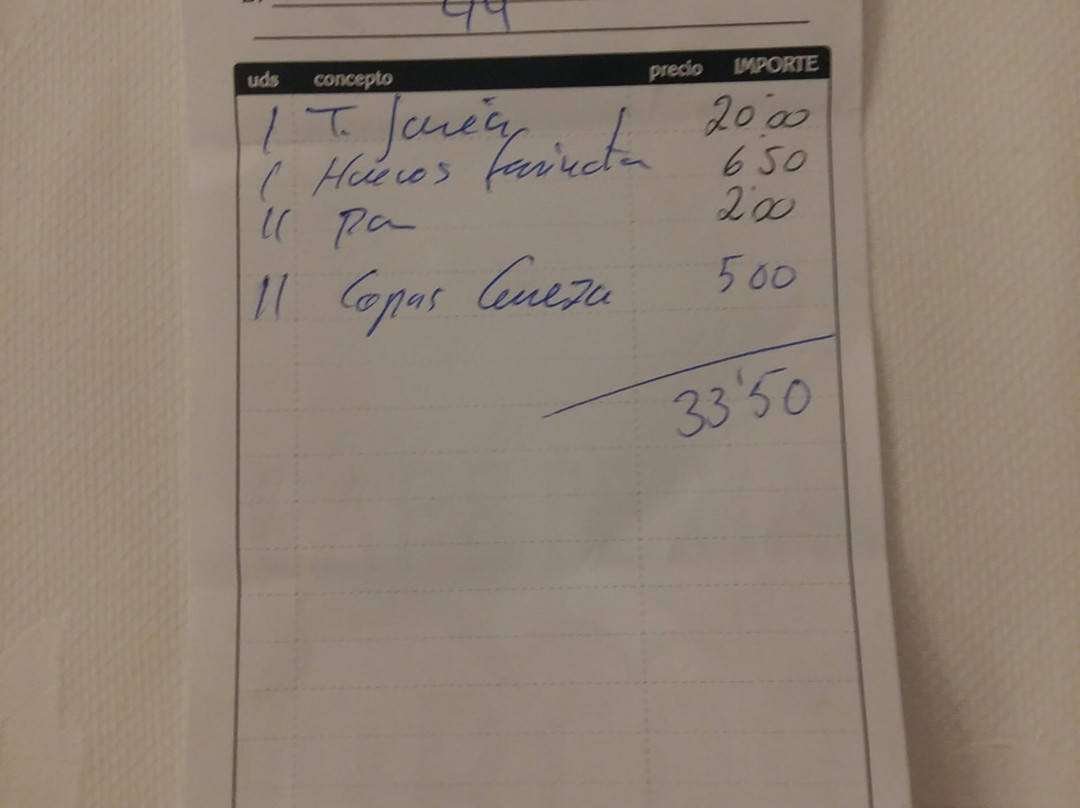 44
uds concepto precio IMPORTE
1 T. 20'00
1 Huevos farinato 6'50
11 Pan 2'00
11 Copas Cerveza 500
33'50